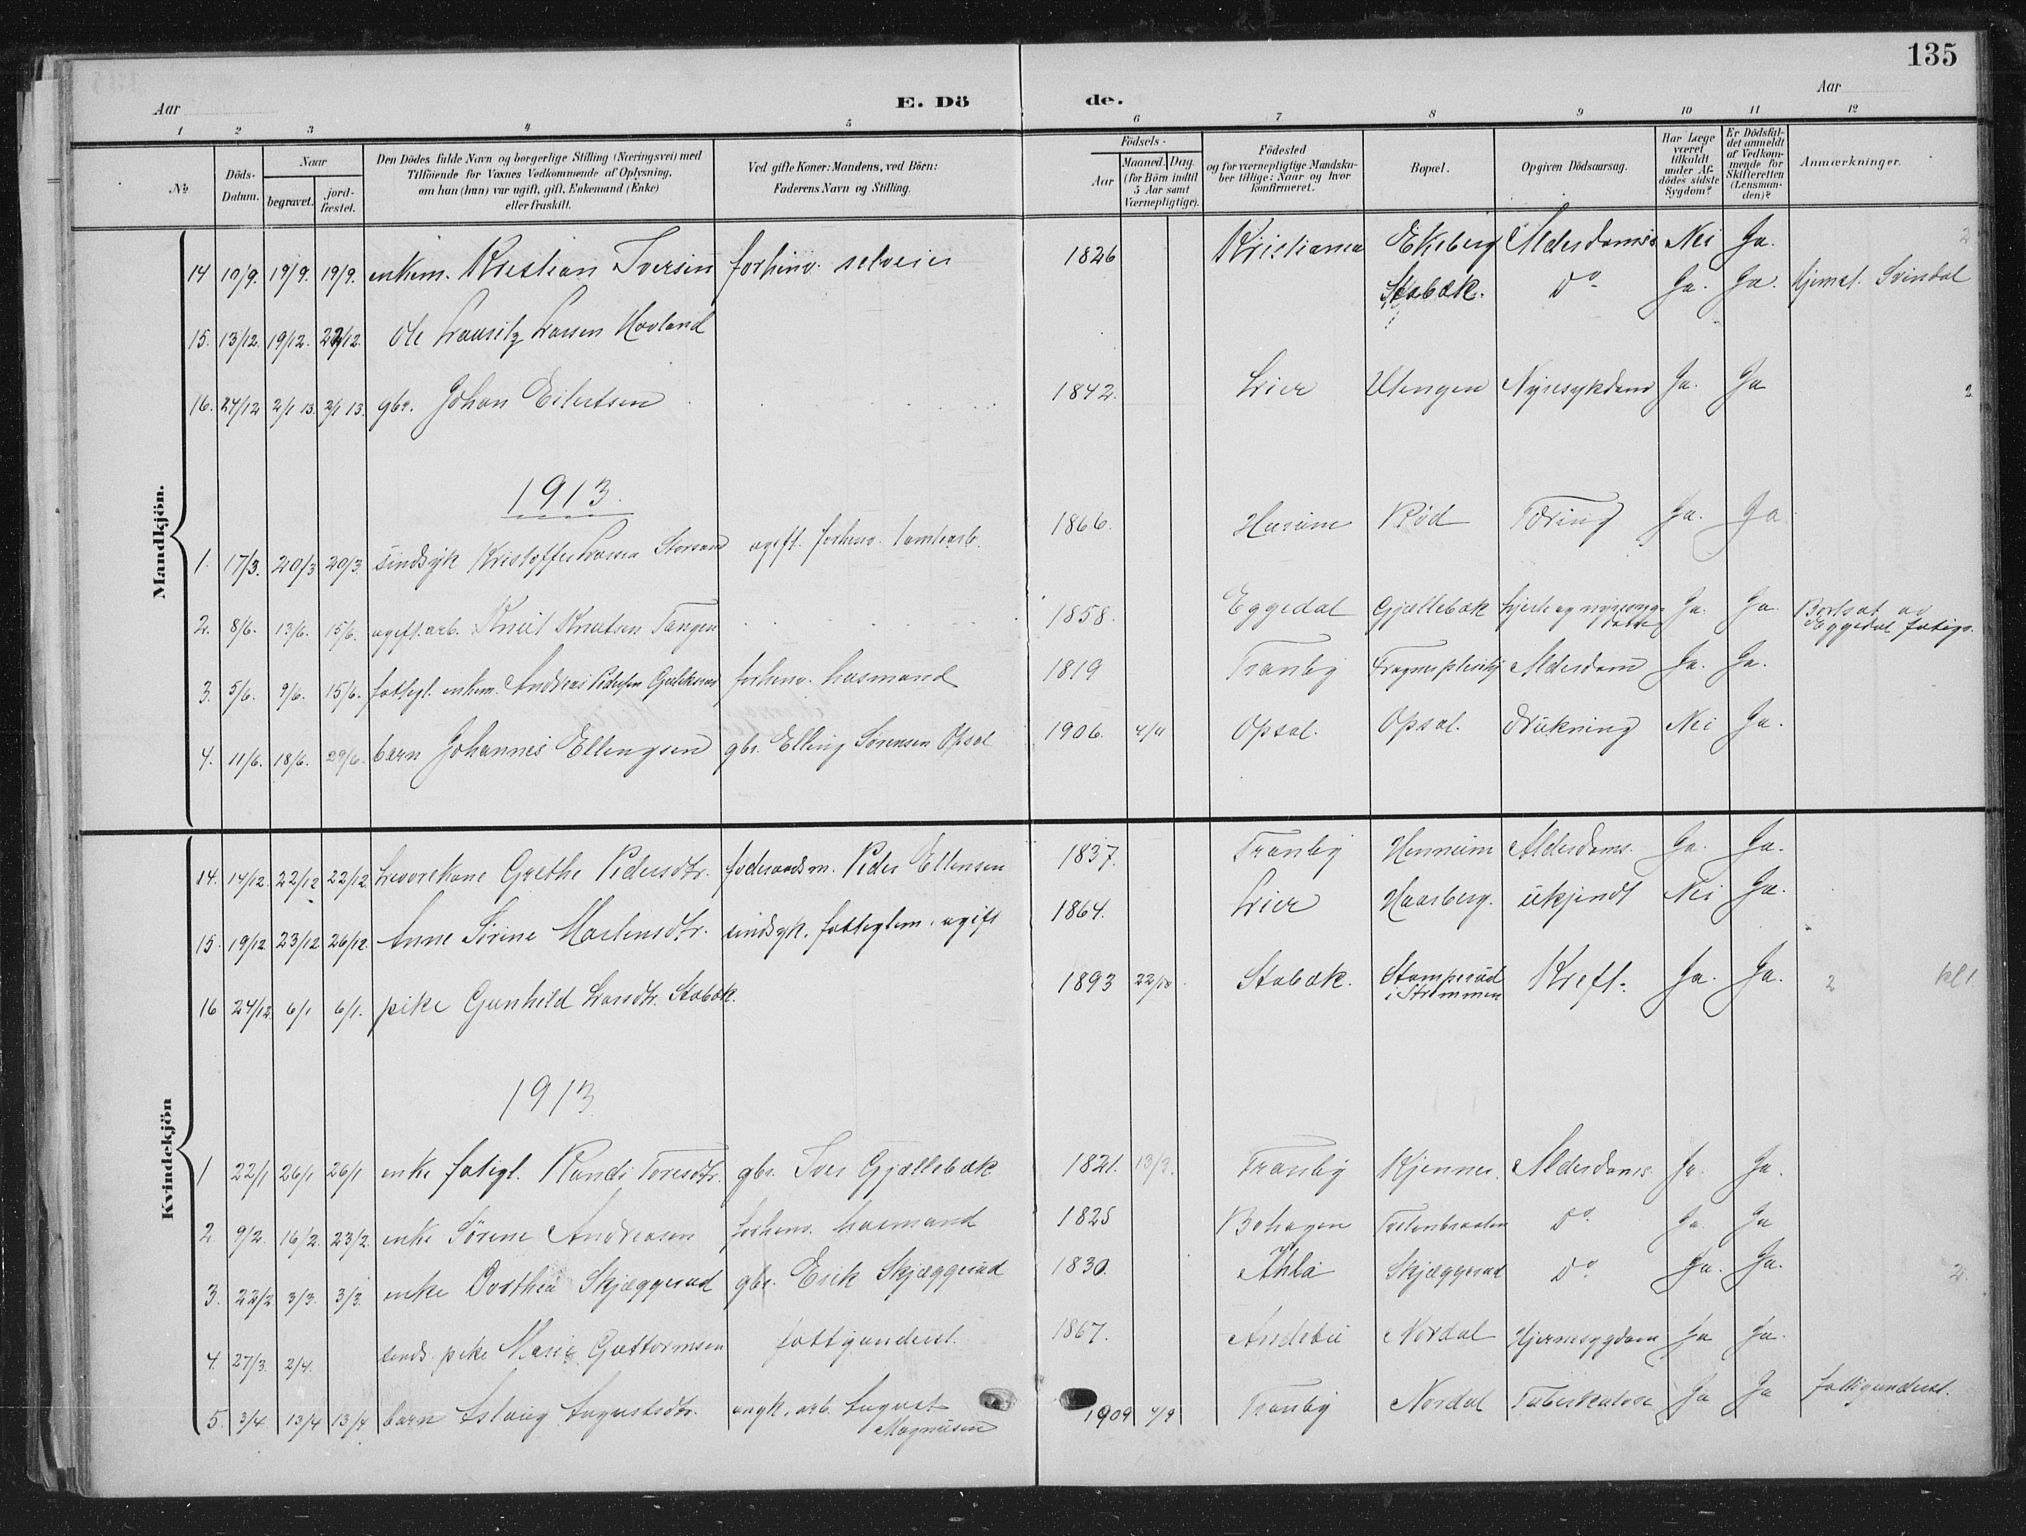 135
Aar E. Dö de. Aar
1 2 3 4 5 6 7 8 9 10 11 12
№
Döds-Datum.
Naar
begravet.
jord-fæstet.
Den Dödes fulde Navn og borgerlige Stilling (Næringsvei) med
Tilföiende for Voxnes Vedkommende af Oplysning,
om han (hun) var ugift, gift, Enkemand (Enke)
eller fraskilt.
Ved gifte Koner: Mandens, ved Börn:
Faderens Navn og Stilling.
Födsels-
Aar
Maaned. Dag.
(for Börn indtil
5 Aar samt
Værnepligtige).
Födested
og for værnepligtige Mandskaber tillige: Naar og hvor
konfirmeret.
Bopæl.
Opgiven Dödsaarsag.
Har Læge været tilkaldt under Afdödes sidste Sygdom?
Er Dödsfaldet anmeldt af Vedkommende for Skifteretten (Lensmanden)?
Anmærkninger.
Mandkjön.
14 10/9. 19/9. 19/9. enkem. Kristian Iversen forhenv. selveier 1826 Kristiania Ekeberg Alderdoms Nei Ja. 2
15. 13/12. 19/12. 22/12. Ole Lauritz Larsen Hovland Stabæk. Do Ja. Ja. Hjemst. Svindal
16. 24/12 2/1 13. 2/1 13. gbr. Johan Eilertsen 1842. Lier Utengen Nyresykdom Ja. Ja 2
1913.
1. 17/3. 20/3 20/3. sindsyk Kristoffer Larsen Storsand ugift. forhenv. tomtearb. 1866. Hurum Rød Tæring Ja. Ja
2. 8/6. 13/6. 15/6. ugift. arb. Knut Knutsen Tangen 1858. Eggedal Gjællebæk hjerte og nyresyg- Ja. Ja. Bortsat av
Eggedal fatigv.
3. 5/6. 9/6. 15/6. fattigl. enkem. Andreas Pedersen forhenv. husmand 1819 Tranby Alderdom Ja. Ja.
4. 11/6. 18/6. 29/6. barn Johannes Ellingsen gbr. Elling Sørensen Opsal 1906. 4/11 Opsal. Opsal. Drukning Nei Ja.
Kvindekjön
14. 14/12. 22/12 22/12 Grethe Pedersdtr. føderaadsm. Peder Ellensen 1837. Tranby Hennum Alderdoms. Ja. Ja.
15. 19/12 23/12 26/12. Anne Sirine Martinsdtr. sindsyk. fattiglem. ugift 1864. Lier Haarberg. ukjendt Nei Ja.
16 24/12 6/1 6/1. pike Gunhild Larsdtr. Stabæk. 1893 22/10. Stabæk. Stamperud
i Strømmen Kreft. Ja. Ja. 2 kl 1.
1913
1 22/1 26/1 26/1 enke fatigl. Randi Toresdtr. gbr. Iver Gjællebæk 1821. 13/3. Tranby Kjenner. Alderdoms. Ja. Ja.
2. 9/2. 16/2. 23/2. enke Sørine Andreasen forhenv. husmand 1825 Bohagen Tveitenbraaten Do. Ja. Ja
3. 22/2 3/3. 3/3. enke Dorthea Skjæggerud gbr. Erik Skjæggerud 1830. Skjæggerud Do. Ja. Ja. 2.
4. 27/3. 2/4. sinds. pike Marie Guttormsen fattigunderst. 1867. Andebu Nordal Hjernesygdom Ja Ja.
5. 3/4 13/4 13/4 barn Aslaug Augustsdtr. ungk. arb. August
Magnusen 1909 4/9 Tranby Nordal Tuberkulose Ja Ja fattigunderst.